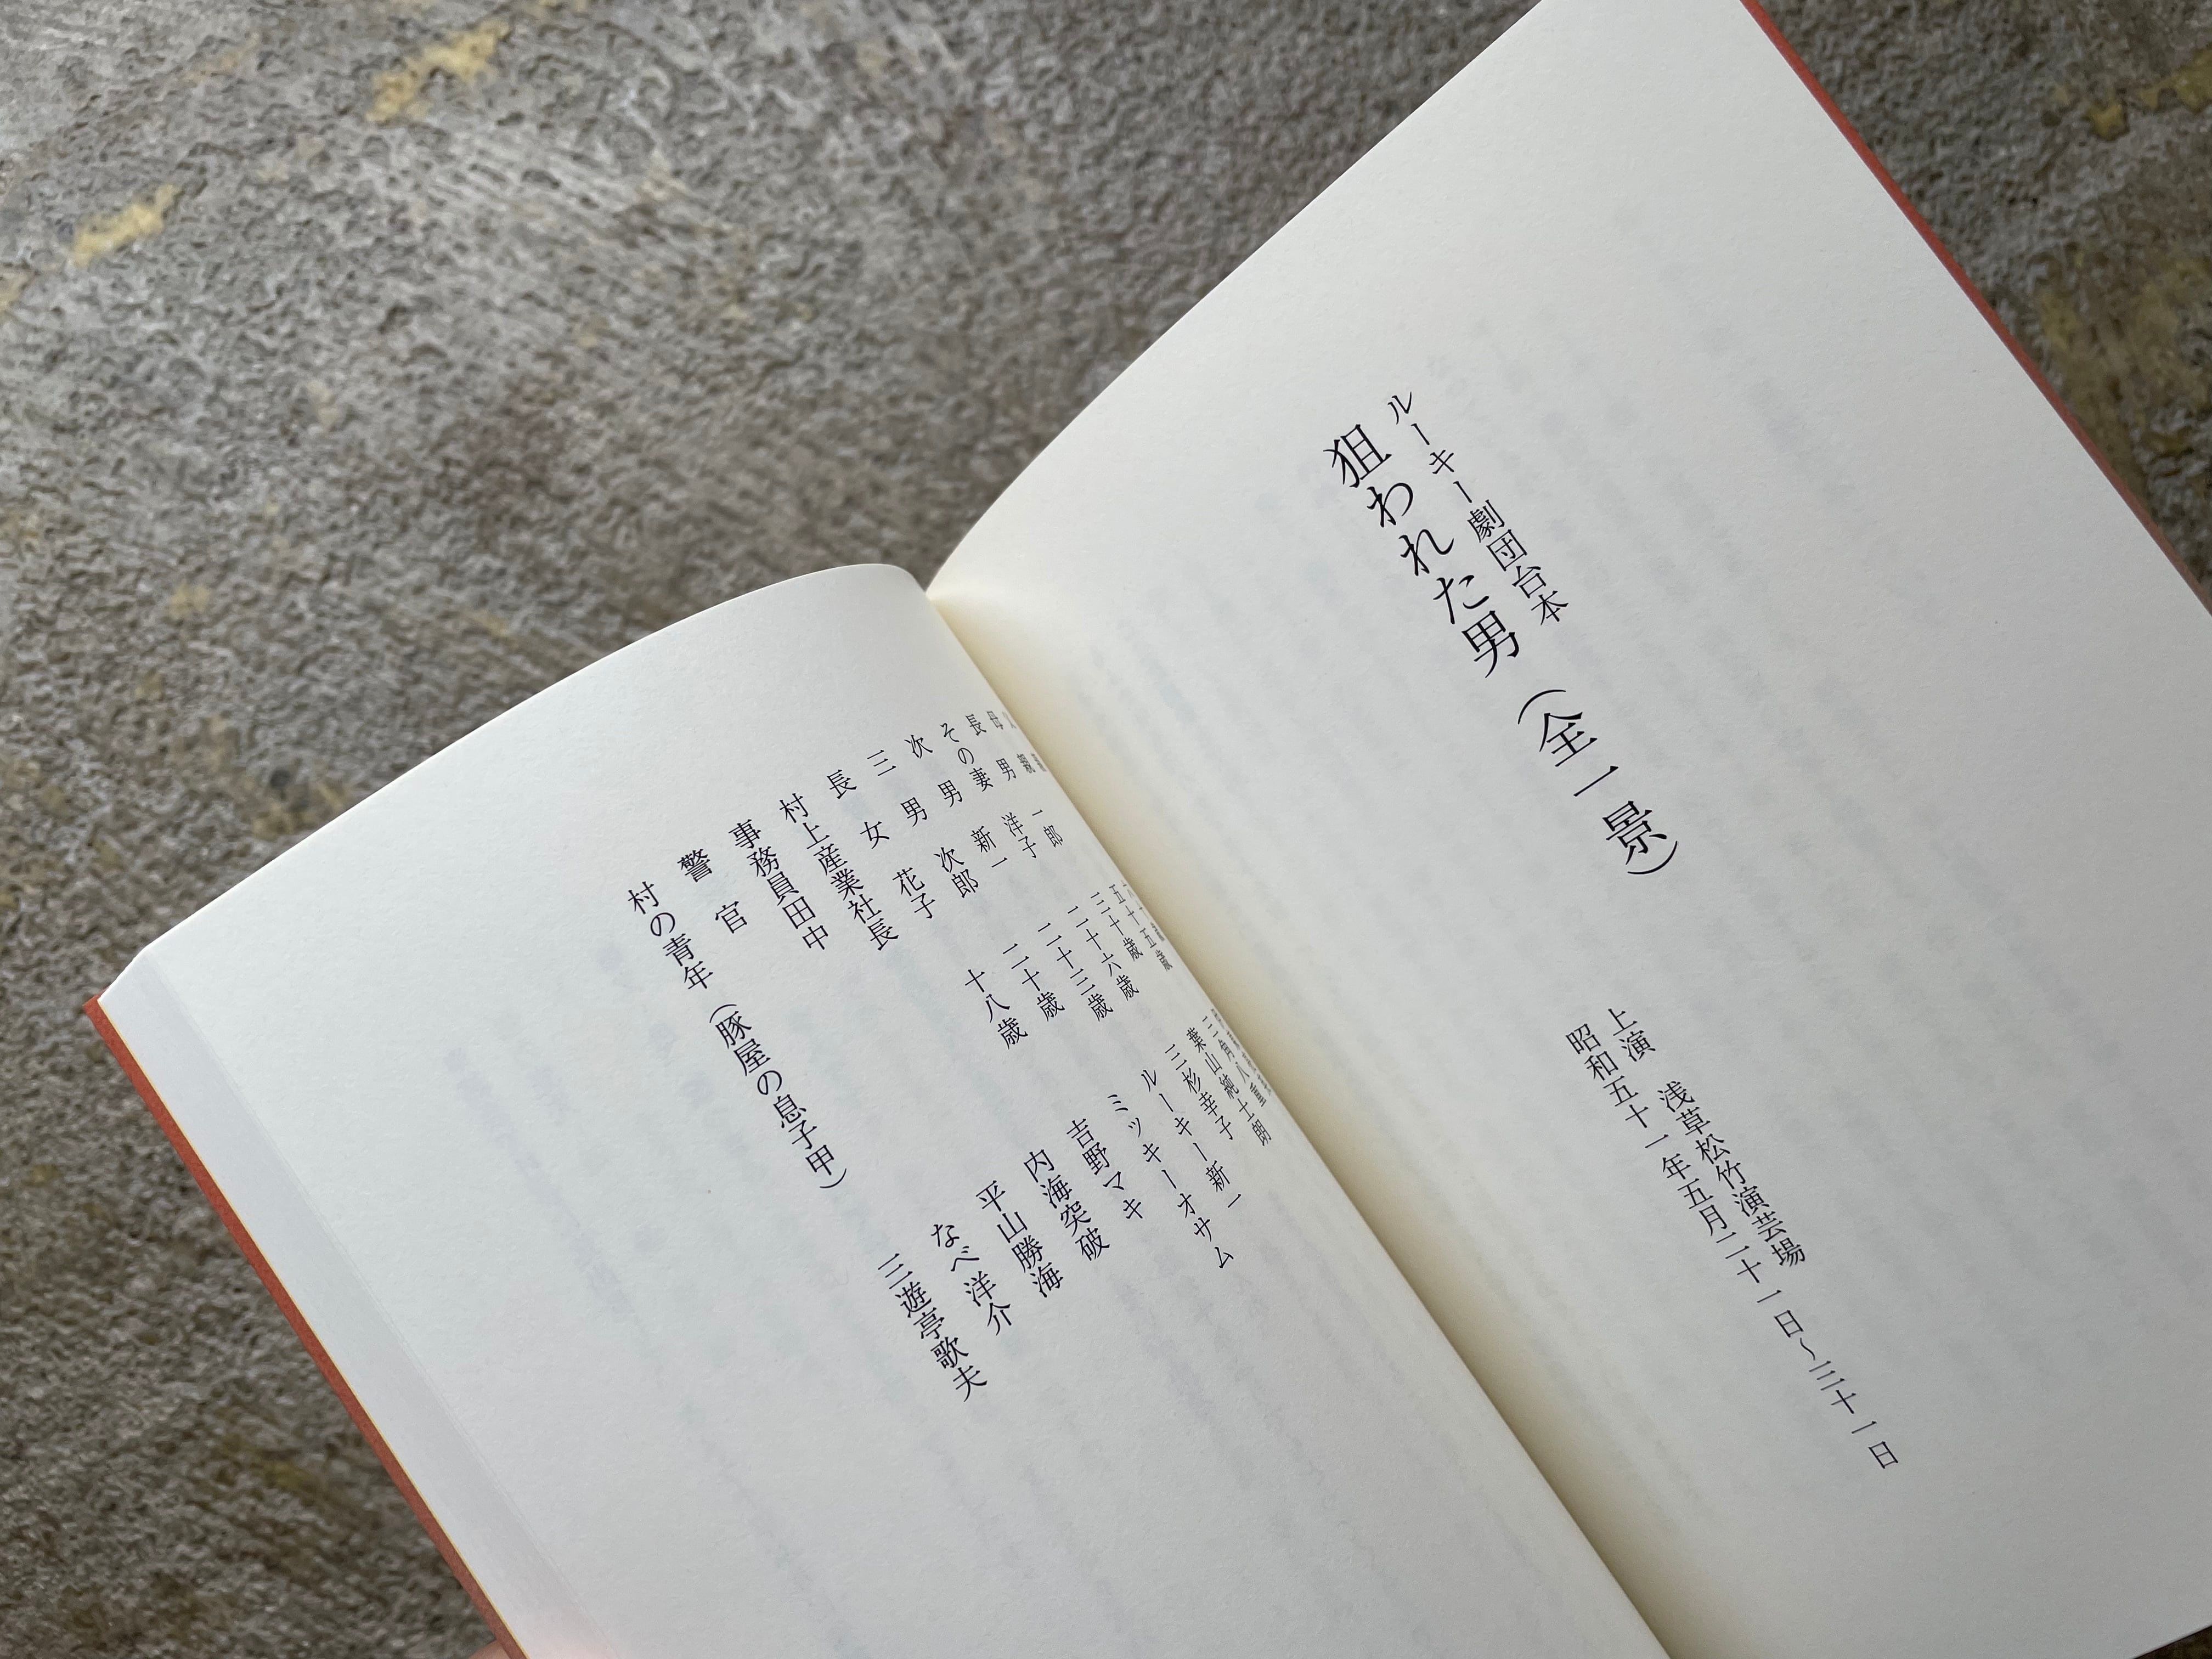 ルーキー劇団台本
狙われた男（全一景）
上演　浅草松竹演芸場
昭和五十一年五月二十一日～三十一日
母　親　五十五歳　三角八重
長　男　一郎　三十歳　葉山純士朗
その妻　洋子　二十六歳　三杉幸子
次　男　新一　二十三歳　ルーキー新一
三　男　次郎　二十歳　ミッキーオサム
長　女　花子　十八歳　吉野マキ
村上産業社長　内海突破
事務員田中　平山勝海
警　官　なべ洋介
村の青年（豚屋の息子甲）　三遊亭歌夫